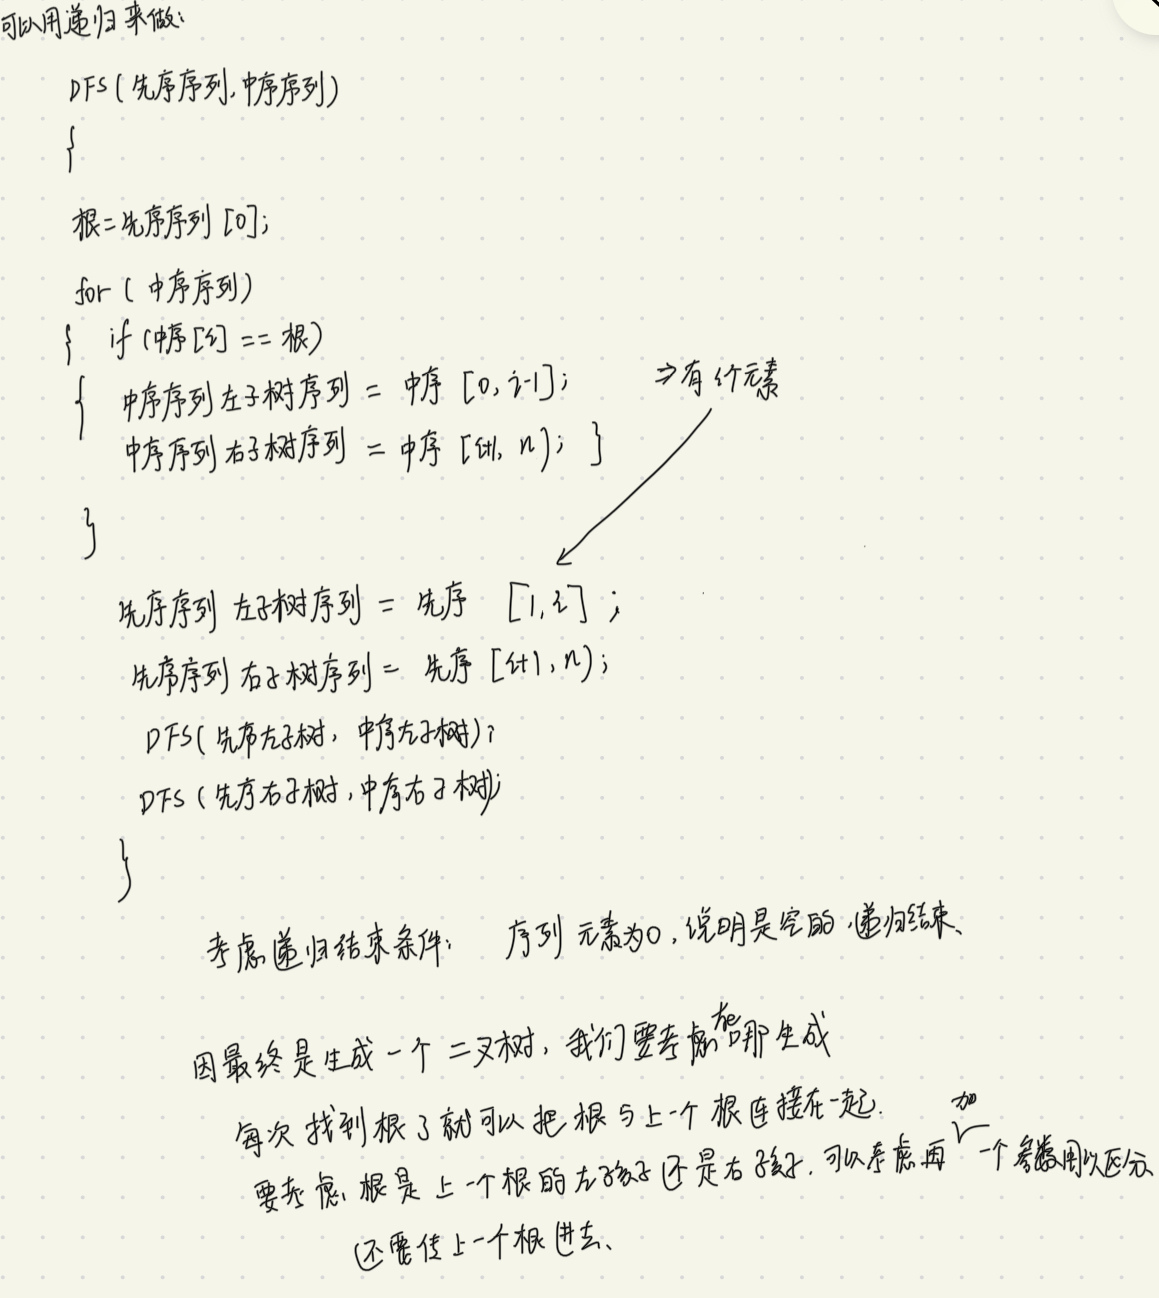 可以用递归来做:
DFS(先序序列,中序序列)
{
根=先序序列[0];
for(中序序列)
{ if(中序[i]==根)
{ 中序序列左子树序列 = 中序[0,i-1]; ⇒有i个元素
中序序列右子树序列 = 中序[i+1,n); }
}
先序序列左子树序列 = 先序 [1,i];
先序序列右子树序列 = 先序[i+1,n);
DFS(先序左子树,中序左子树);
DFS(先序右子树,中序右子树);
}
考虑递归结束条件: 序列元素为0,说明是空的,递归结束、
因最终是生成一个二叉树,我们要考虑在哪生成
每次找到根了就可以把根与上一个根连接在一起.
要考虑,根是上一个根的左孩子还是右孩子.可以考虑再加一个参数用以区分、
还要传上一个根进去、